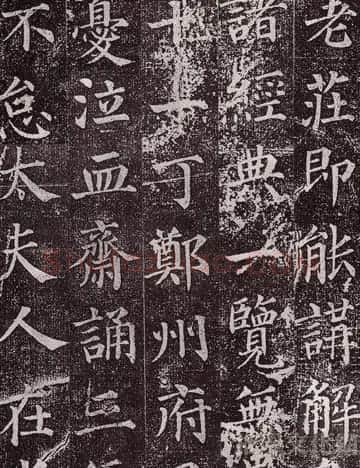 老莊即能講解
諸經典一覽無
十一丁鄭州府
憂泣血齋誦三
不怠太夫人在